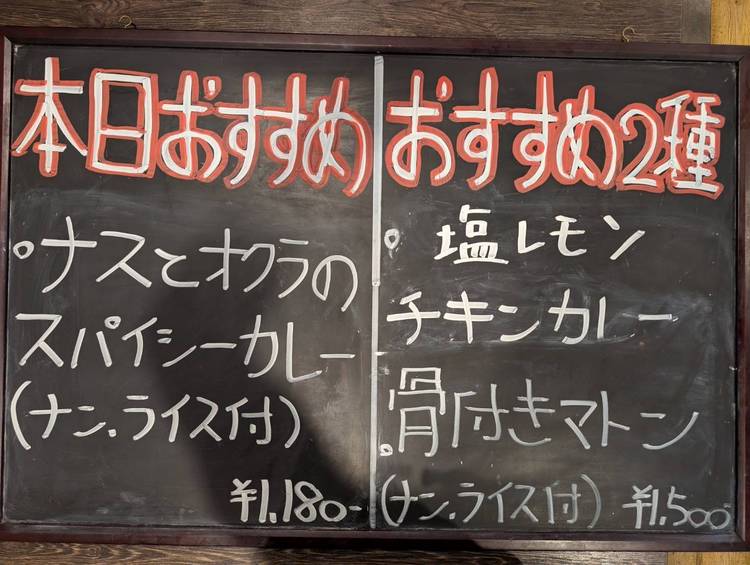 本日おすすめ
・ナスとオクラの
スパイシーカレー
(ナン、ライス付)
¥1,180-
おすすめ2種
・塩レモン
チキンカレー
・骨付きマトン
(ナン、ライス付) ¥1,500